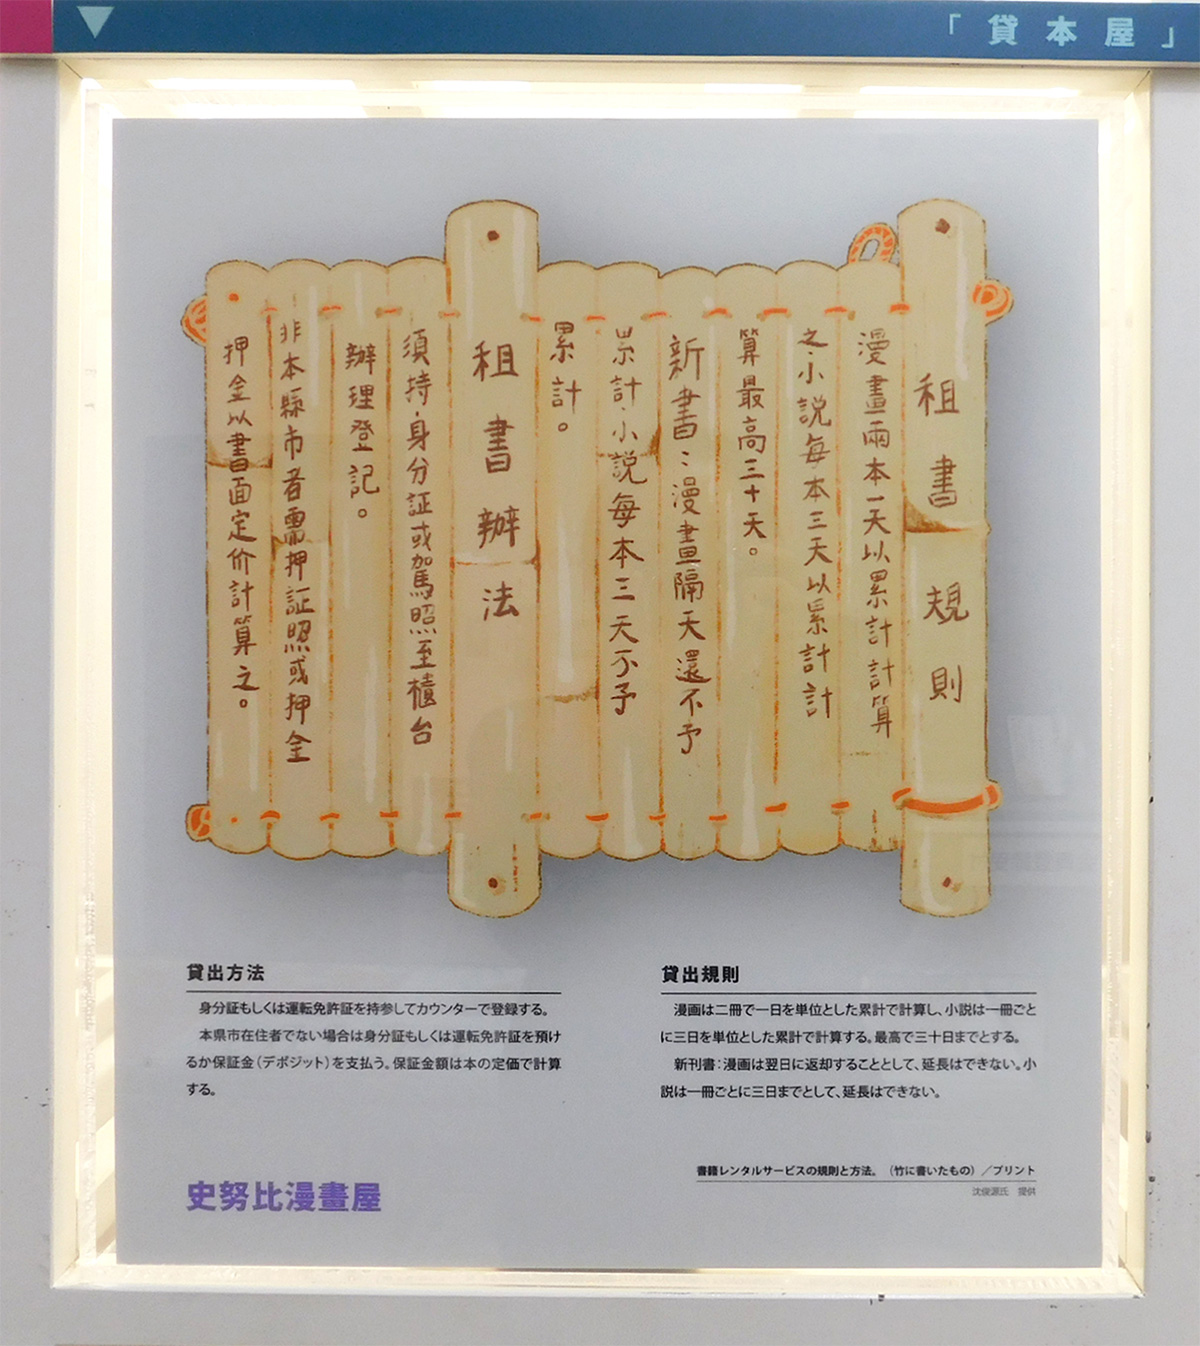 「貸本屋」
租書規則
漫畫兩本一天以累計計算
之·小説每本三天以累計計
算最高三十天。
新書：漫畫隔天還不予
累計·小説每本三天不予
累計。
租書辦法
須持身分証或駕照至櫃台
辦理登記。
非本縣市者需押証照或押金
押金以書面定价計算之。
貸出方法
身分証もしくは運転免許証を持参してカウンターで登録する。
本県市在住者でない場合は身分証もしくは運転免許証を預け
るか保証金（デポジット）を支払う。保証金額は本の定価で計算
する。
貸出規則
漫画は二冊で一日を単位とした累計で計算し、小説は一冊ごと
に三日を単位とした累計で計算する。最高で三十日までとする。
新刊書：漫画は翌日に返却することとして、延長はできない。小
説は一冊ごとに三日までとして、延長はできない。
書籍レンタルサービスの規則と方法。（竹に書いたもの）／プリント
沈俊源氏　提供
史努比漫畫屋